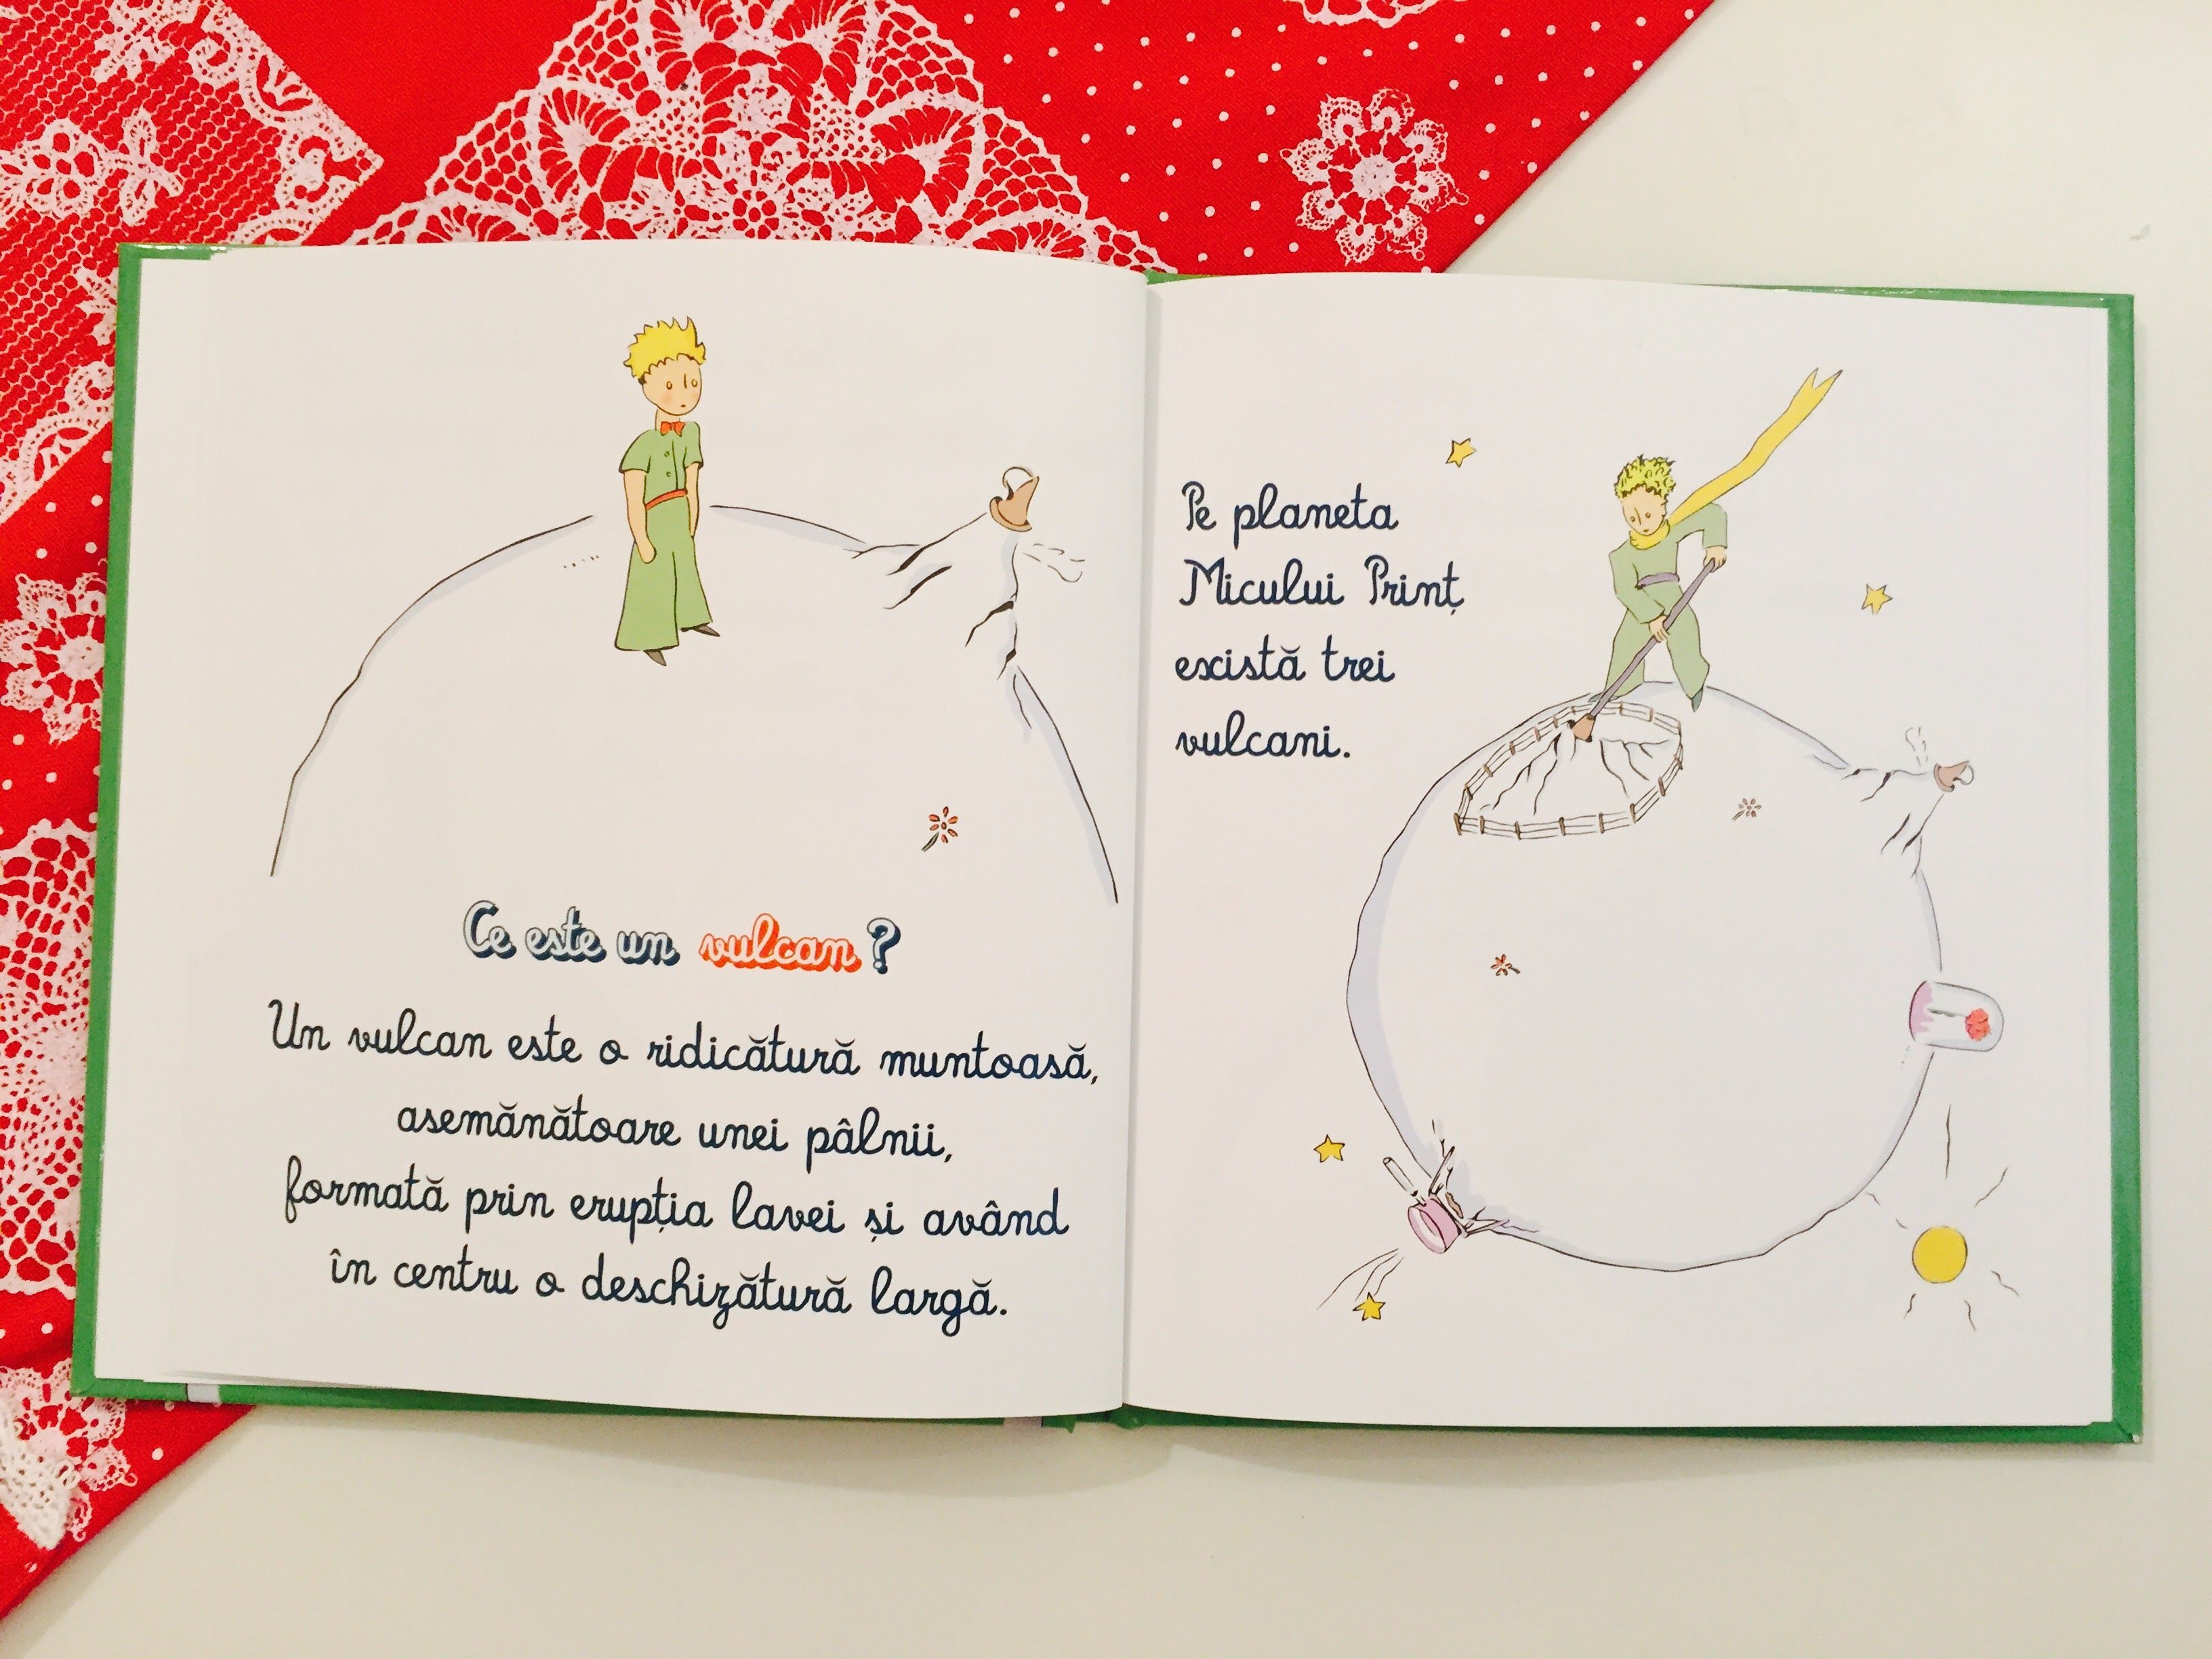 Ce este un vulcan?
Un vulcan este o ridicătură muntoasă,
asemănătoare unei pâlnii,
formată prin erupția lavei și având
în centru o deschizătură largă.
Pe planeta
Micului Prinț
există trei
vulcani.